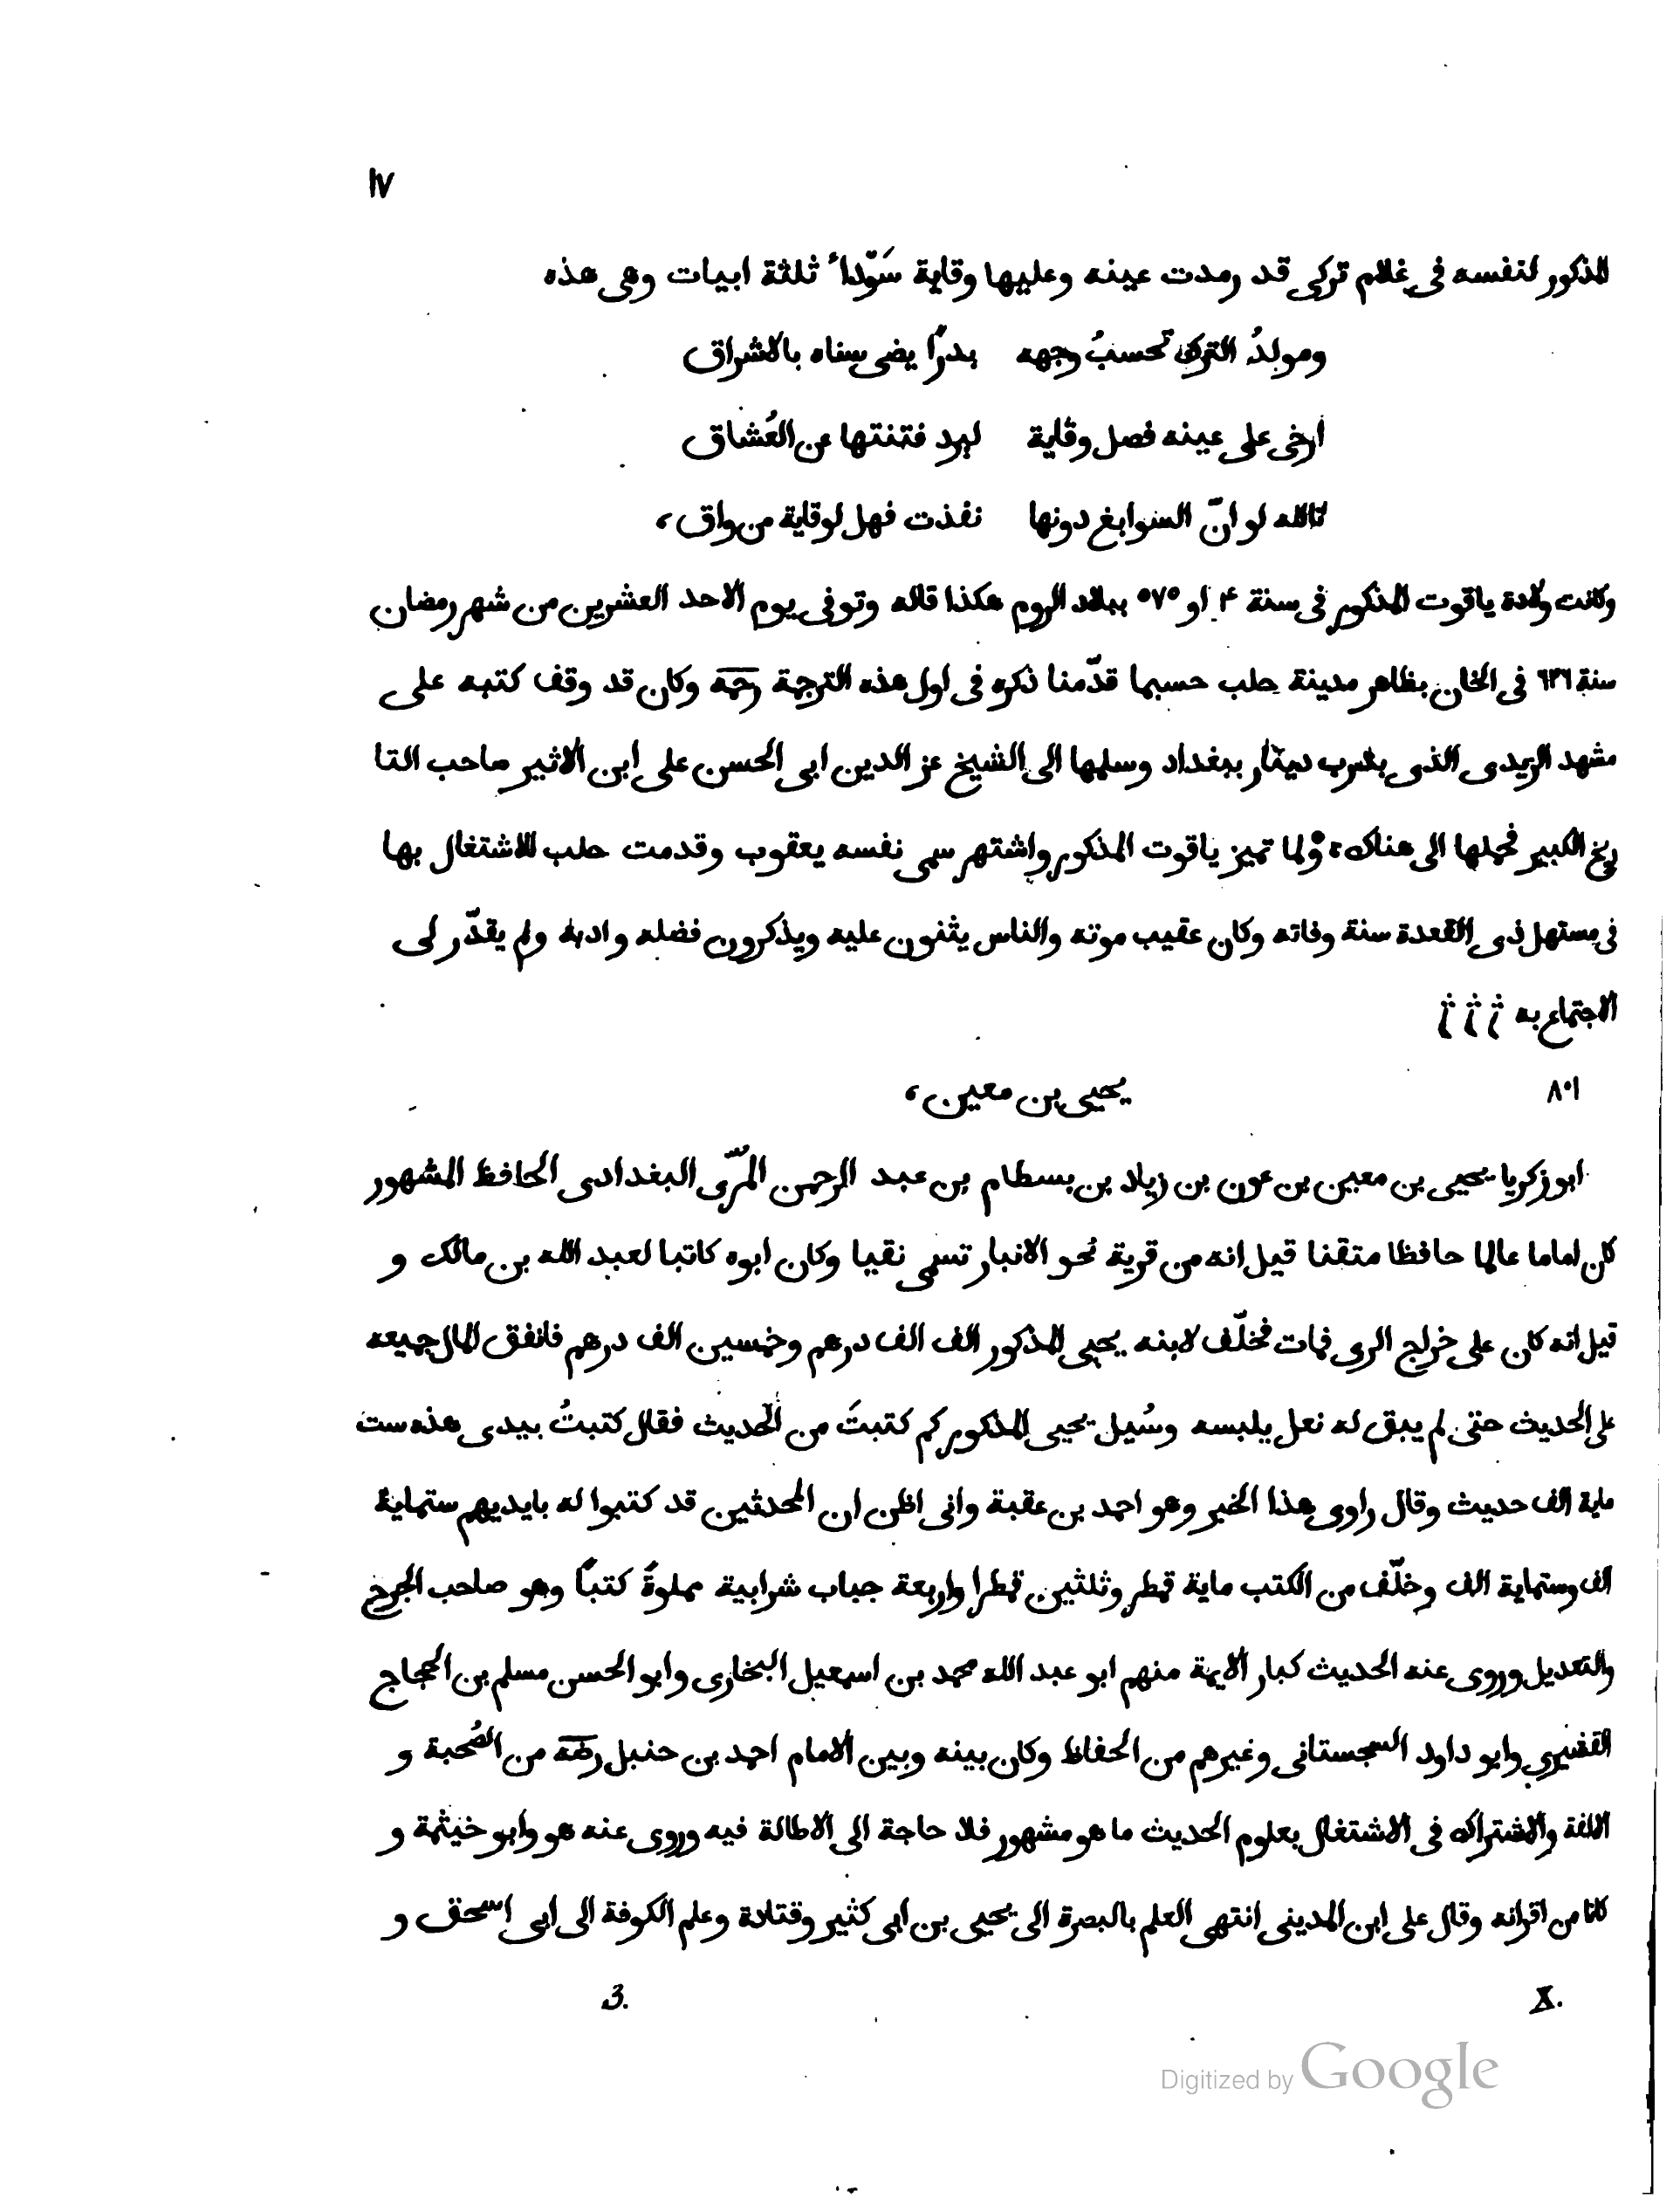 ١٧
المذكور لنفسه فى غلام تركى قد رمدت عينه وعليها وقاية سَوّداءُ ثلثة ابيات وهى هذه
ومولدُ الترك تحسبُ وجهه بدرًا يضى سناه بالاشراق
ارخى على عينه فصل وقاية ليرد فتنتها عن العُشاق
تالله لو انّ السوابغ دونها نفذت فهل لوقاية من واق،
وكانت ولادة ياقوت المذكور فى سنة ۴ او ٥٧٥ ببلاد الروم هكذا قاله وتوفى يوم الاحد العشرين من شهر رمضان
سنة ٦٢٦ فى الخان بظاهر مدينة حلب حسبما قدّمنا ذكره فى اول هذه الترجمة رحمه وكان قد وقف كتبه على
مشهد الزيدى الذى بدرب دينار ببغداد وسلمها الى الشيخ عز الدين ابى الحسن على ابن الاثير صاحب التا
ريخ الكبير فحملها الى هناك، ولما تميز ياقوت المذكور واشتهر سمى نفسه يعقوب وقدمت حلب للاشتغال بها
فى مستهل ذى القعدة سنة وفاته وكان عقيب موته والناس يثنون عليه ويذكرون فضله وادبه ولم يقدّر لى
الاجتماع به
٨٠١
يحيى بن معين،
ابو زكريا يحيى بن معين بن عون بن زياد بن بسطام بن عبد الرحمن المرّى البغدادى الحافظ المشهور
كان اماما عالما حافظا متقنا قيل انه من قرية نحو الانبار تسمى نقيا وكان ابوه كاتبا لعبد الله بن مالك و
قيل انه كان على خراج الرى فمات فخلّف لابنه يحيى المذكور الف الف درهم وخمسين الف درهم فانفق المال جميعه
على الحديث حتى لم يبق له نعل يلبسه وسُيل يحيى المذكور كم كتبتَ من الحديث فقال كتبتُ بيدى هذه ست
ماية الف حديث وقال راوى هذا الخبر وهو احمد بن عقبة وانى اظن ان المحدثين قد كتبوا له بايديهم ستماية
الف وستماية الف وخلّف من الكتب ماية قمطر وثلثين قمطرا واربعة جباب شرابية مملوةً كتبًا وهو صاحب الجرح
والتعديل وروى عنه الحديث كبار الايمة منهم ابو عبد الله محمد بن اسمعيل البخارى وابو الحسن مسلم بن الحجاج
القشيرى وابو داود السجستانى وغيرهم من الحفاظ وكان بينه وبين الامام احمد بن حنبل رحمه من الصُحبة و
الالفة والاشتراك فى الاشتغال بعلوم الحديث ما هو مشهور فلا حاجة الى الاطالة فيه وروى عنه هو وابو خيثمة و
كانا من اقرانه وقال على ابن المدينى انتهى العلم بالبصرة الى يحيى بن ابى كثير وقتادة وعلم الكوفة الى ابى اسحق و
X. 3.
Digitized by Google